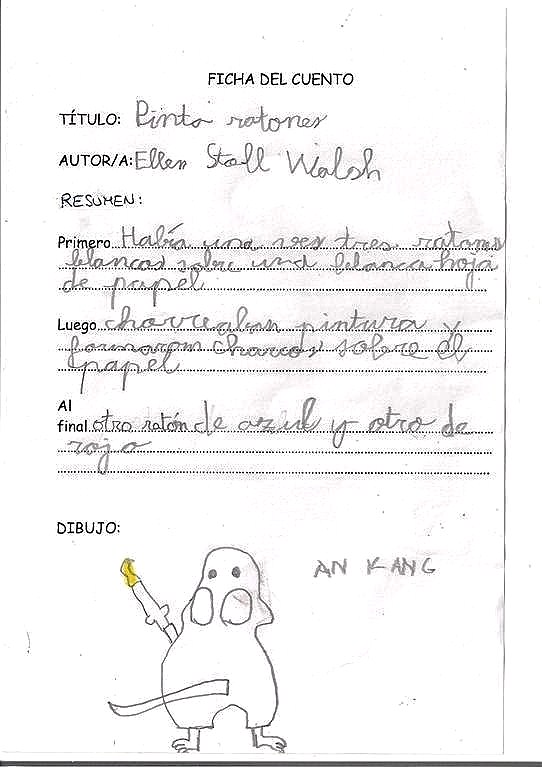 FICHA DEL CUENTO
TÍTULO: Pinta ratones
AUTOR/A: Ellen Stoll Walsh
RESUMEN:
Primero Había una vez tres ratones
blancos sobre una blanca hoja
de papel
Luego chorreaban pintura y
formaron charcos sobre el
papel
Al
final otro ratón de azul y otro de
rojo
DIBUJO:
AN KANG